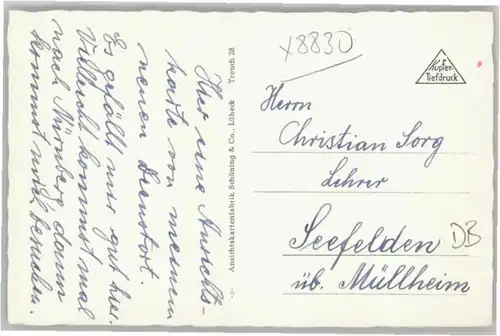 Hier eine Ansichts-
karte von meinem
neuen Dienstort.
Es gefällt mir gut hier.
Vielleicht kommst mal
nach Nürnberg dann
kommst mich besuchen.
-:- Ansichtskartenfabrik Schöning & Co., Lübeck Treuch 28
x8830
Kupfer-
Tiefdruck
Herrn
Christian Sorg
Lehrer
Seefelden
DB
üb. Müllheim